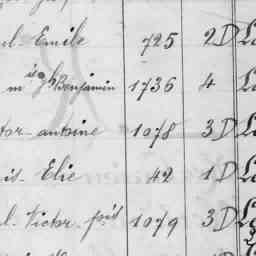 l. Emile 725 2 D
m Benjamin 1736 4
tor antoine 1078 3 D
is Elie 42 1 D
l. Victor fois 1079 3 D